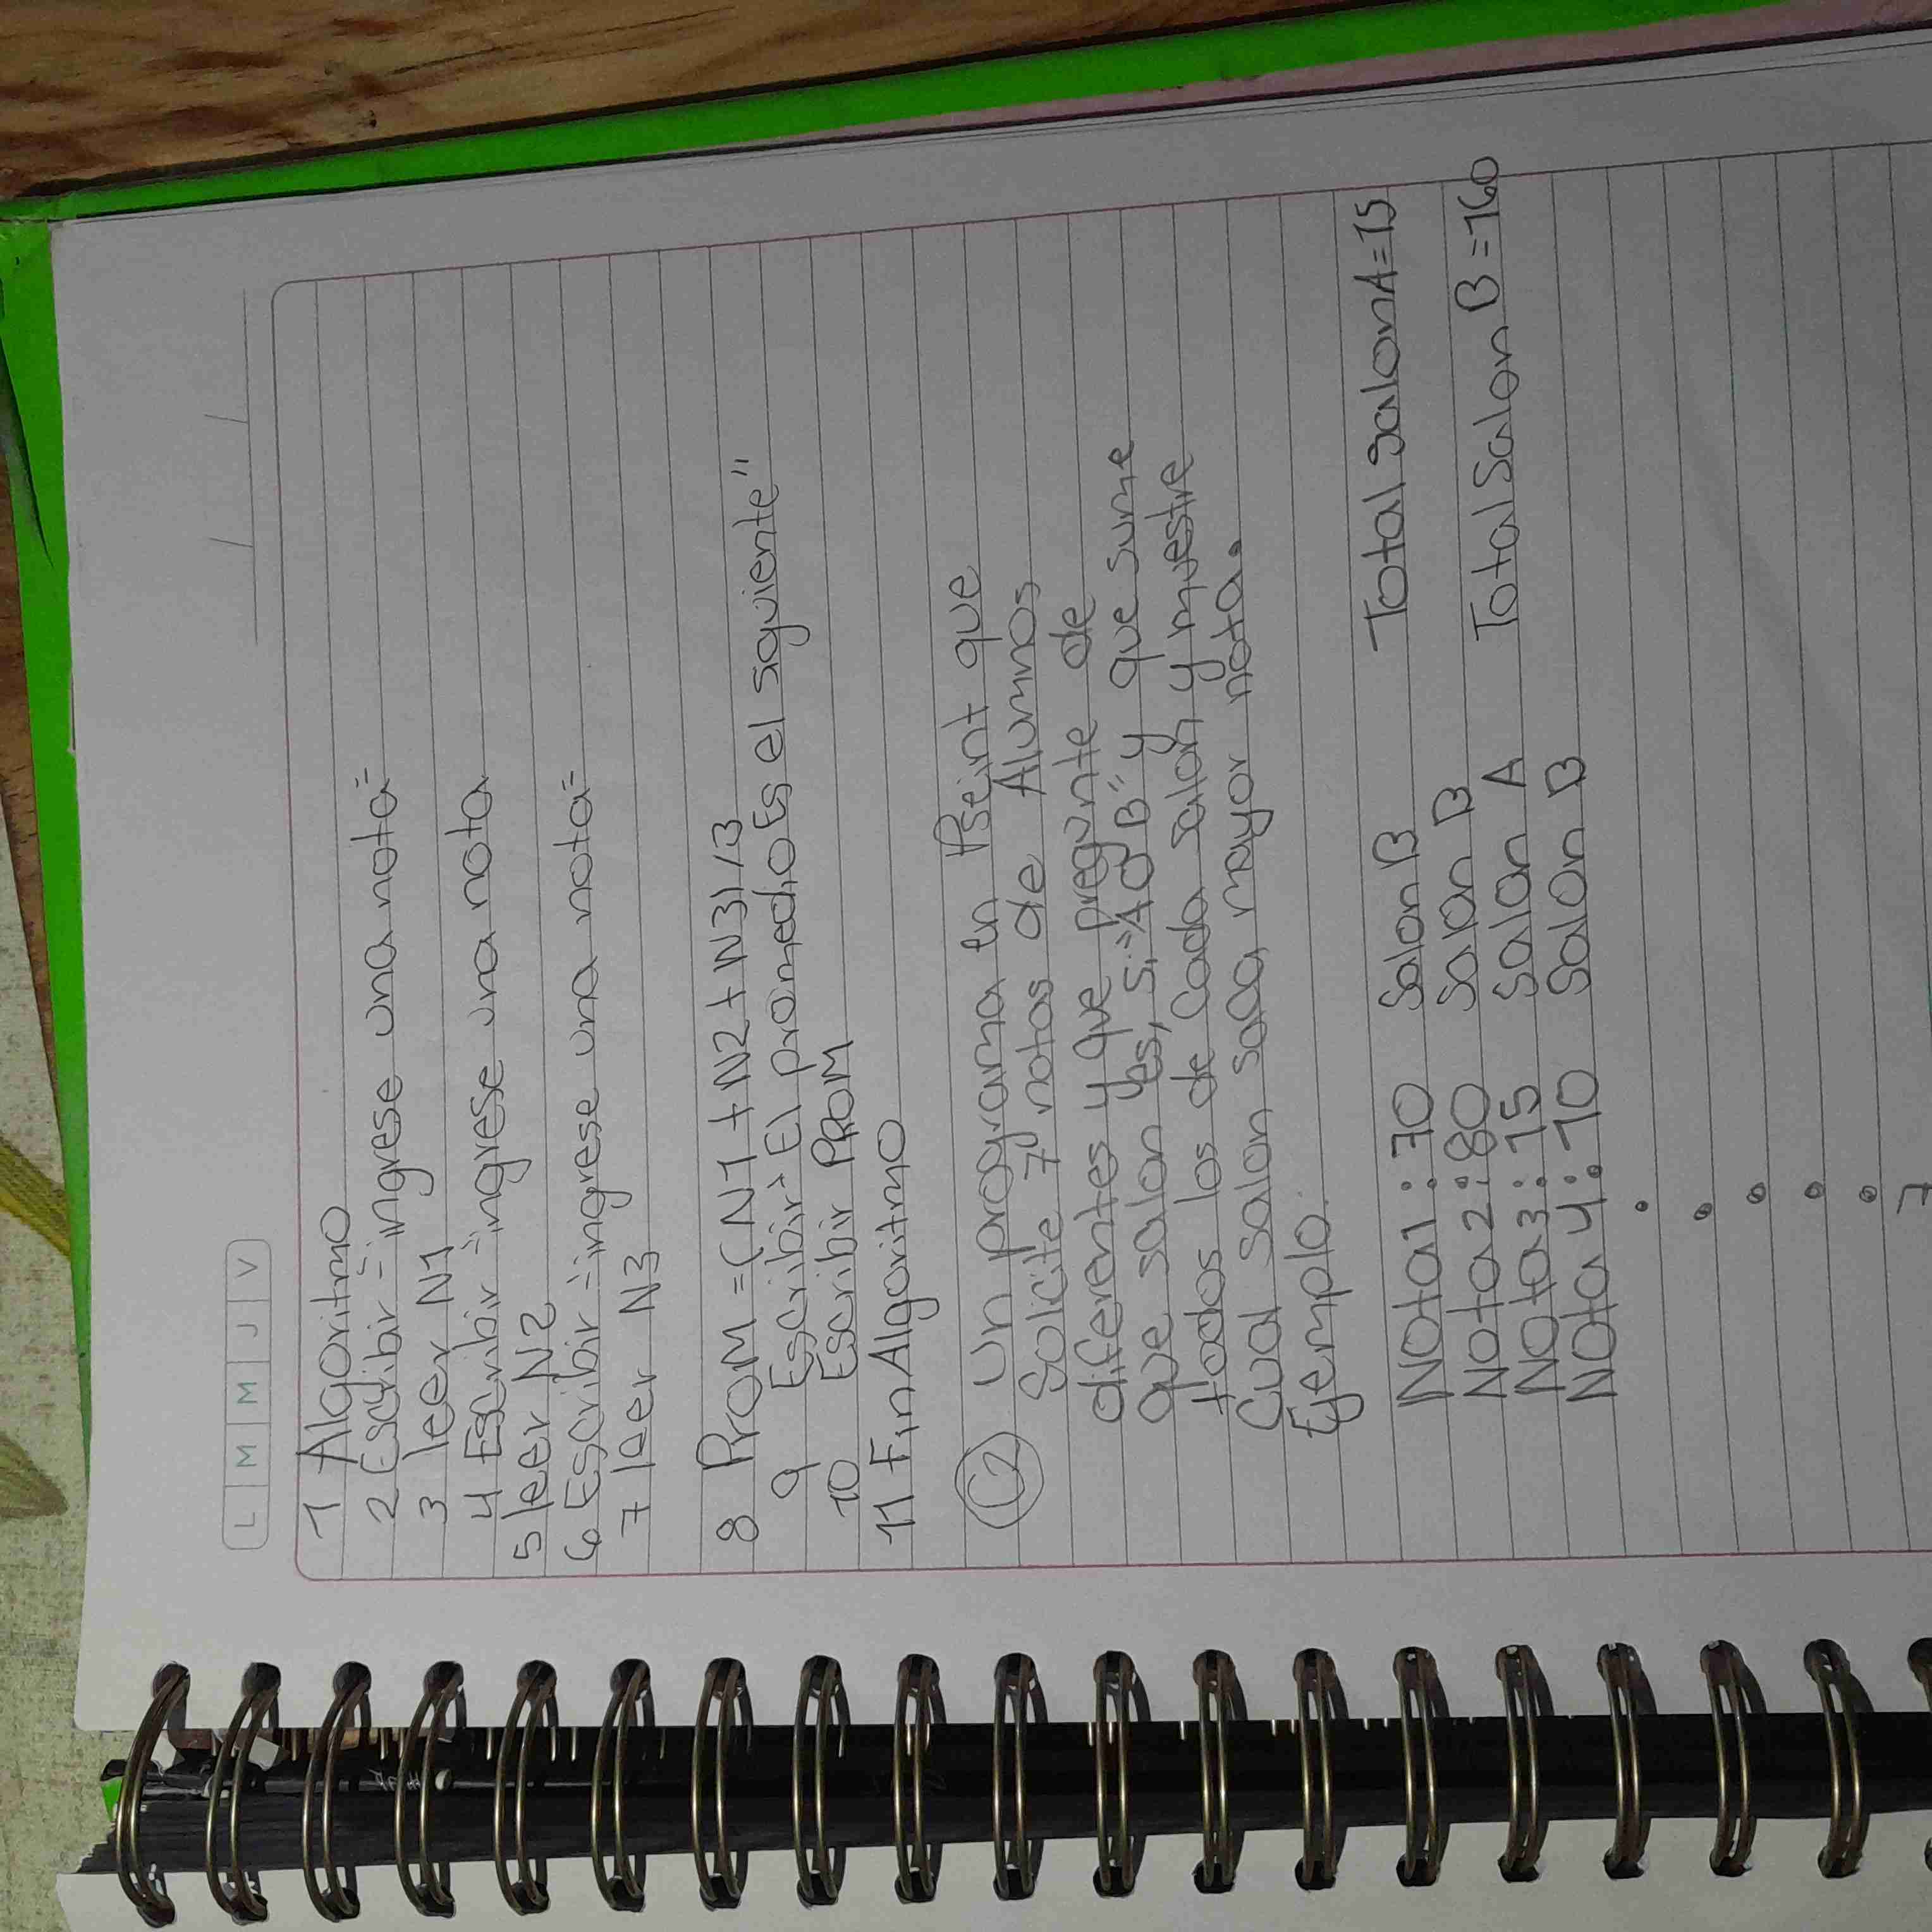 L M M J V
1 Algoritmo
2 Escribir "ingrese una nota"
3 leer N1
4 Escribir "ingrese una nota
5 leer N2
6 Escribir "ingrese una nota"
7 leer N3
8 PROM = (N1 + N2 + N3) / 3
9 Escribir "El promedio Es el siguiente"
10 Escribir PROM
11 Fin Algoritmo
C2 Un programa en Pseint que
Solicite 7 notas de Alumnos
diferentes y que pregunte de
que salon es, si "A O B" y que sume
todos los de cada salon y muestre
Cual salon saca mayor nota.
Ejemplo:
Nota 1 : 70 Salon B Total Salon A = 15
Nota 2 : 80 Salon B
Nota 3 : 15 Salon A Total Salon B = 160
Nota 4 : 10 Salon B
7